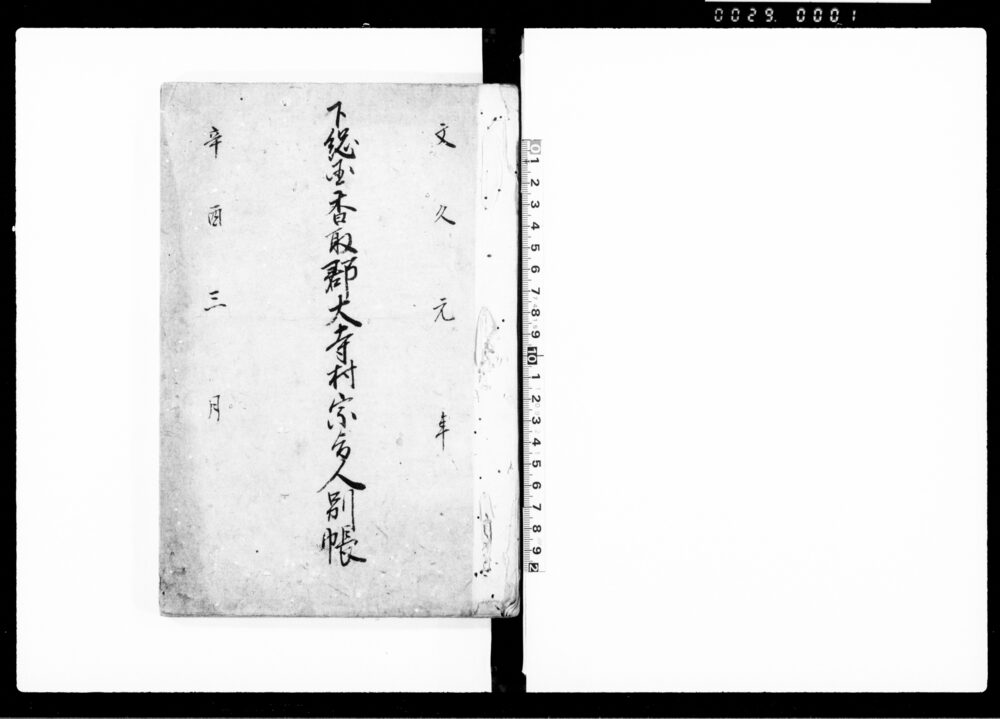 0029 0001
文久元年
下総国香取郡大寺村宗旨人別帳
辛酉三月
0 1 2 3 4 5 6 7 8 9 10 1 2 3 4 5 6 7 8 9 2